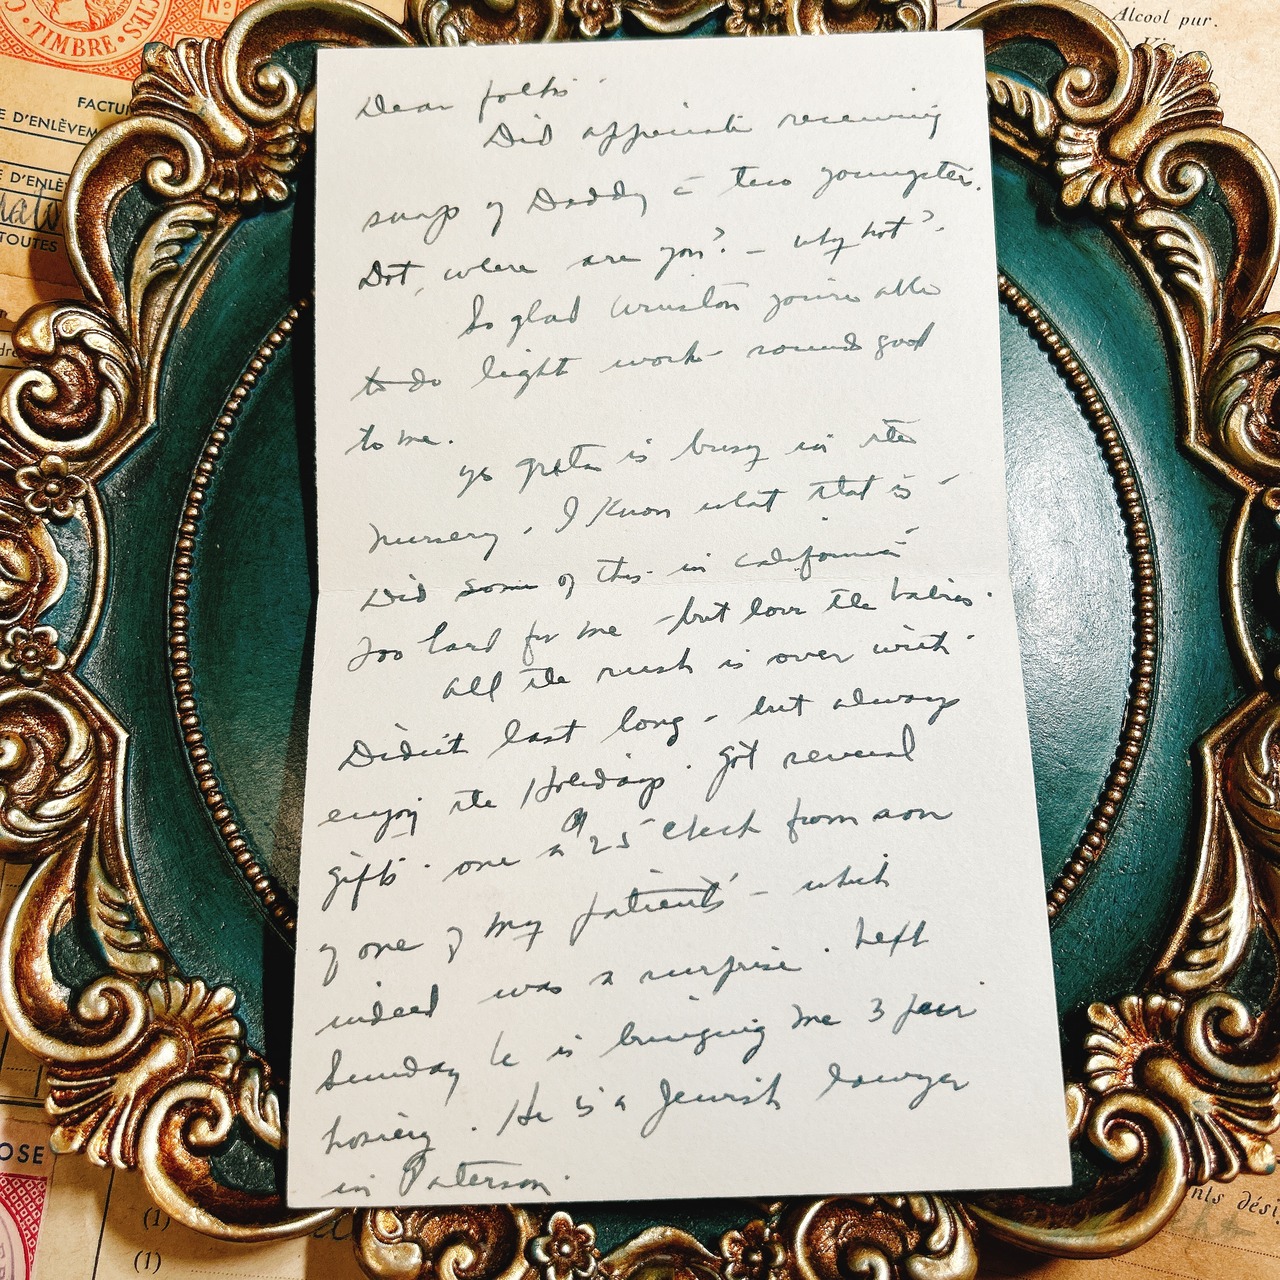 TIMBRE
FACTU
E D'ENLÈVEM
E D'ENLÈ
TOUTES
Nº
Alcool pur.
Dear folks -
Did appreciate receiving
snap of Daddy c̄ two youngster.
Dot, where are you? - why not?
So glad Winston you're able
to do light work - sounds good
to me.
is busy in the
nursery, I know what that is -
Did some of this in California
Too hard for me - but love the babies.
All the rush is over with -
Didn't last long - but always
enjoy the Holidays. Got several
gifts. one a $25 check from son
of one of my patients - which
indeed was a surprise. Next
Sunday he is bringing me 3 pair
hosiery. He is a Jewish lawyer
in Paterson.
OSE
(1)
(1)